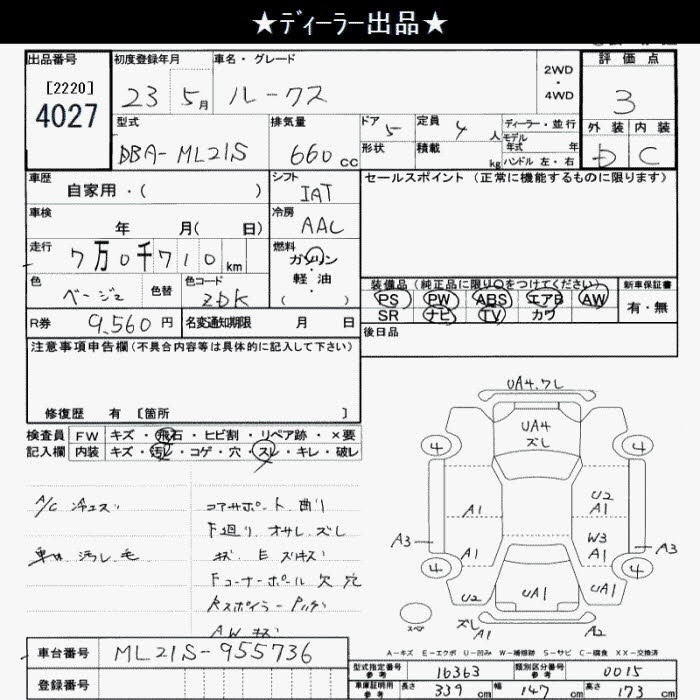 ★ディーラー出品★
出品番号
[2220]
4027
初度登録年月
23 5月
車名・グレード
ルークス
2WD
・
4WD
評価点
3
外装 内装
D C
型式
DBA-ML21S
排気量
660 cc
ドア 5
形状
定員 4 人
積載 kg
ディーラー・並行
モデル
年式 年
ハンドル 左・右
車歴
自家用・( )
シフト
IAT
セールスポイント (正常に機能するものに限ります)
車検
年 月( 日)
冷房
AAC
走行
7万0千710 km
燃料
ガソリン
・
軽油
( )
色
ベージュ
色替
色コード
ZBK
装備品 (純正品に限り○をつけてください)
PS PW ABS エアB AW
SR ナビ TV カワ
新車保証書
有・無
R券 9,560 円
名変通知期限 月 日
後日品
注意事項申告欄 (不具合内容等は具体的に記入して下さい)
修復歴 有 [箇所 ]
検査員
記入欄
FW キズ・飛石・ヒビ割・リペア跡・×要
内装 キズ・汚レ・コゲ・穴・スレ・キレ・破レ
A/C 冷エズ
車内 汚レ 毛
コアサポート 曲リ
F廻リ オサレ ズレ
キズ E スリキズ
Fコーナーポール 欠 穴
AW キズ
UA4.ワレ
UA4
ズレ
4
4
A1
U2
A1
A3
A1
W3
A1
A3
4
4
U2
UA1
UA1
スペア
ズレ
A1
A2
A-キズ E-エクボ U-凹み W-補修跡 S-サビ C-腐食 XX-交換済
車台番号 ML21S-955736
登録番号
型式指定番号
参考
16363
類別区分番号
参考
0015
車庫証明用
参考
長さ 339 cm
幅 147 cm
高さ 173 cm